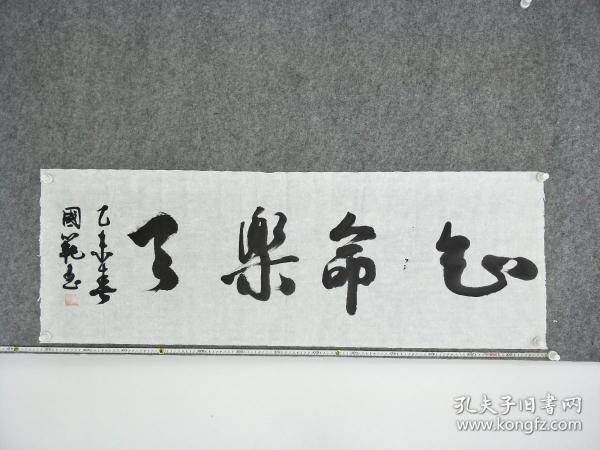 知命樂天
乙未春
國範书
孔夫子旧书网
www.kongfz.com